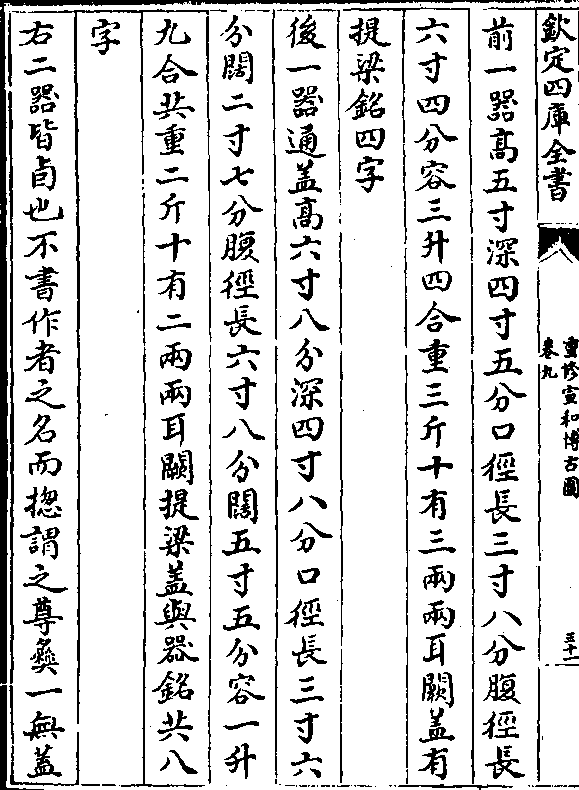 欽定四庫全書
重修宣和博古圖
卷九
三十一
前一器高五寸深四寸五分口徑長三寸八分腹徑長
六寸四分容三升四合重三斤十有三兩兩耳闕蓋有
提梁銘四字
後一器通蓋高六寸八分深四寸八分口徑長三寸六
分闊二寸七分腹徑長六寸八分闊五寸五分容一升
九合共重二斤十有二兩兩耳闕提梁蓋與器銘共八
字
右二器皆卣也不書作者之名而揔謂之尊彝一無蓋